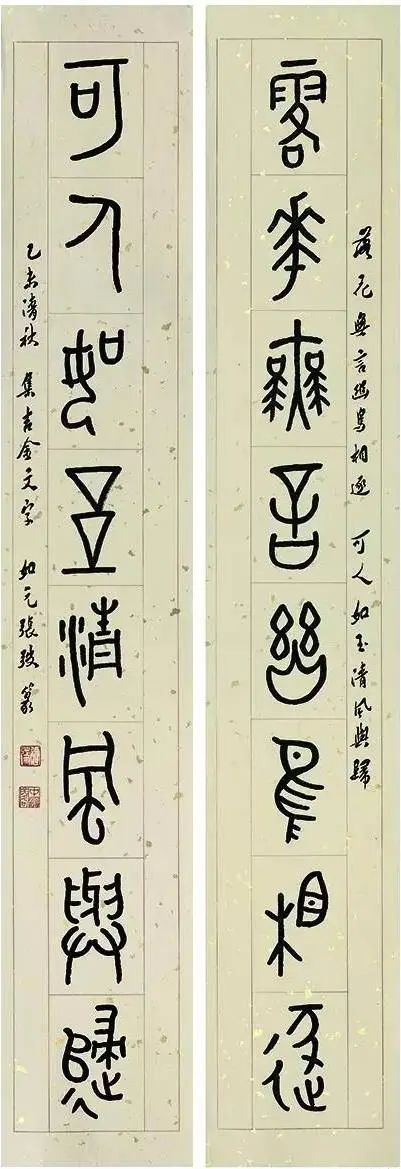 落花無言幽鳥相逐 可人如玉清風與歸
落華無言幽鳥相逐
可人如玉清風與歸
乙未清秋 集吉金文字 如元張 篆